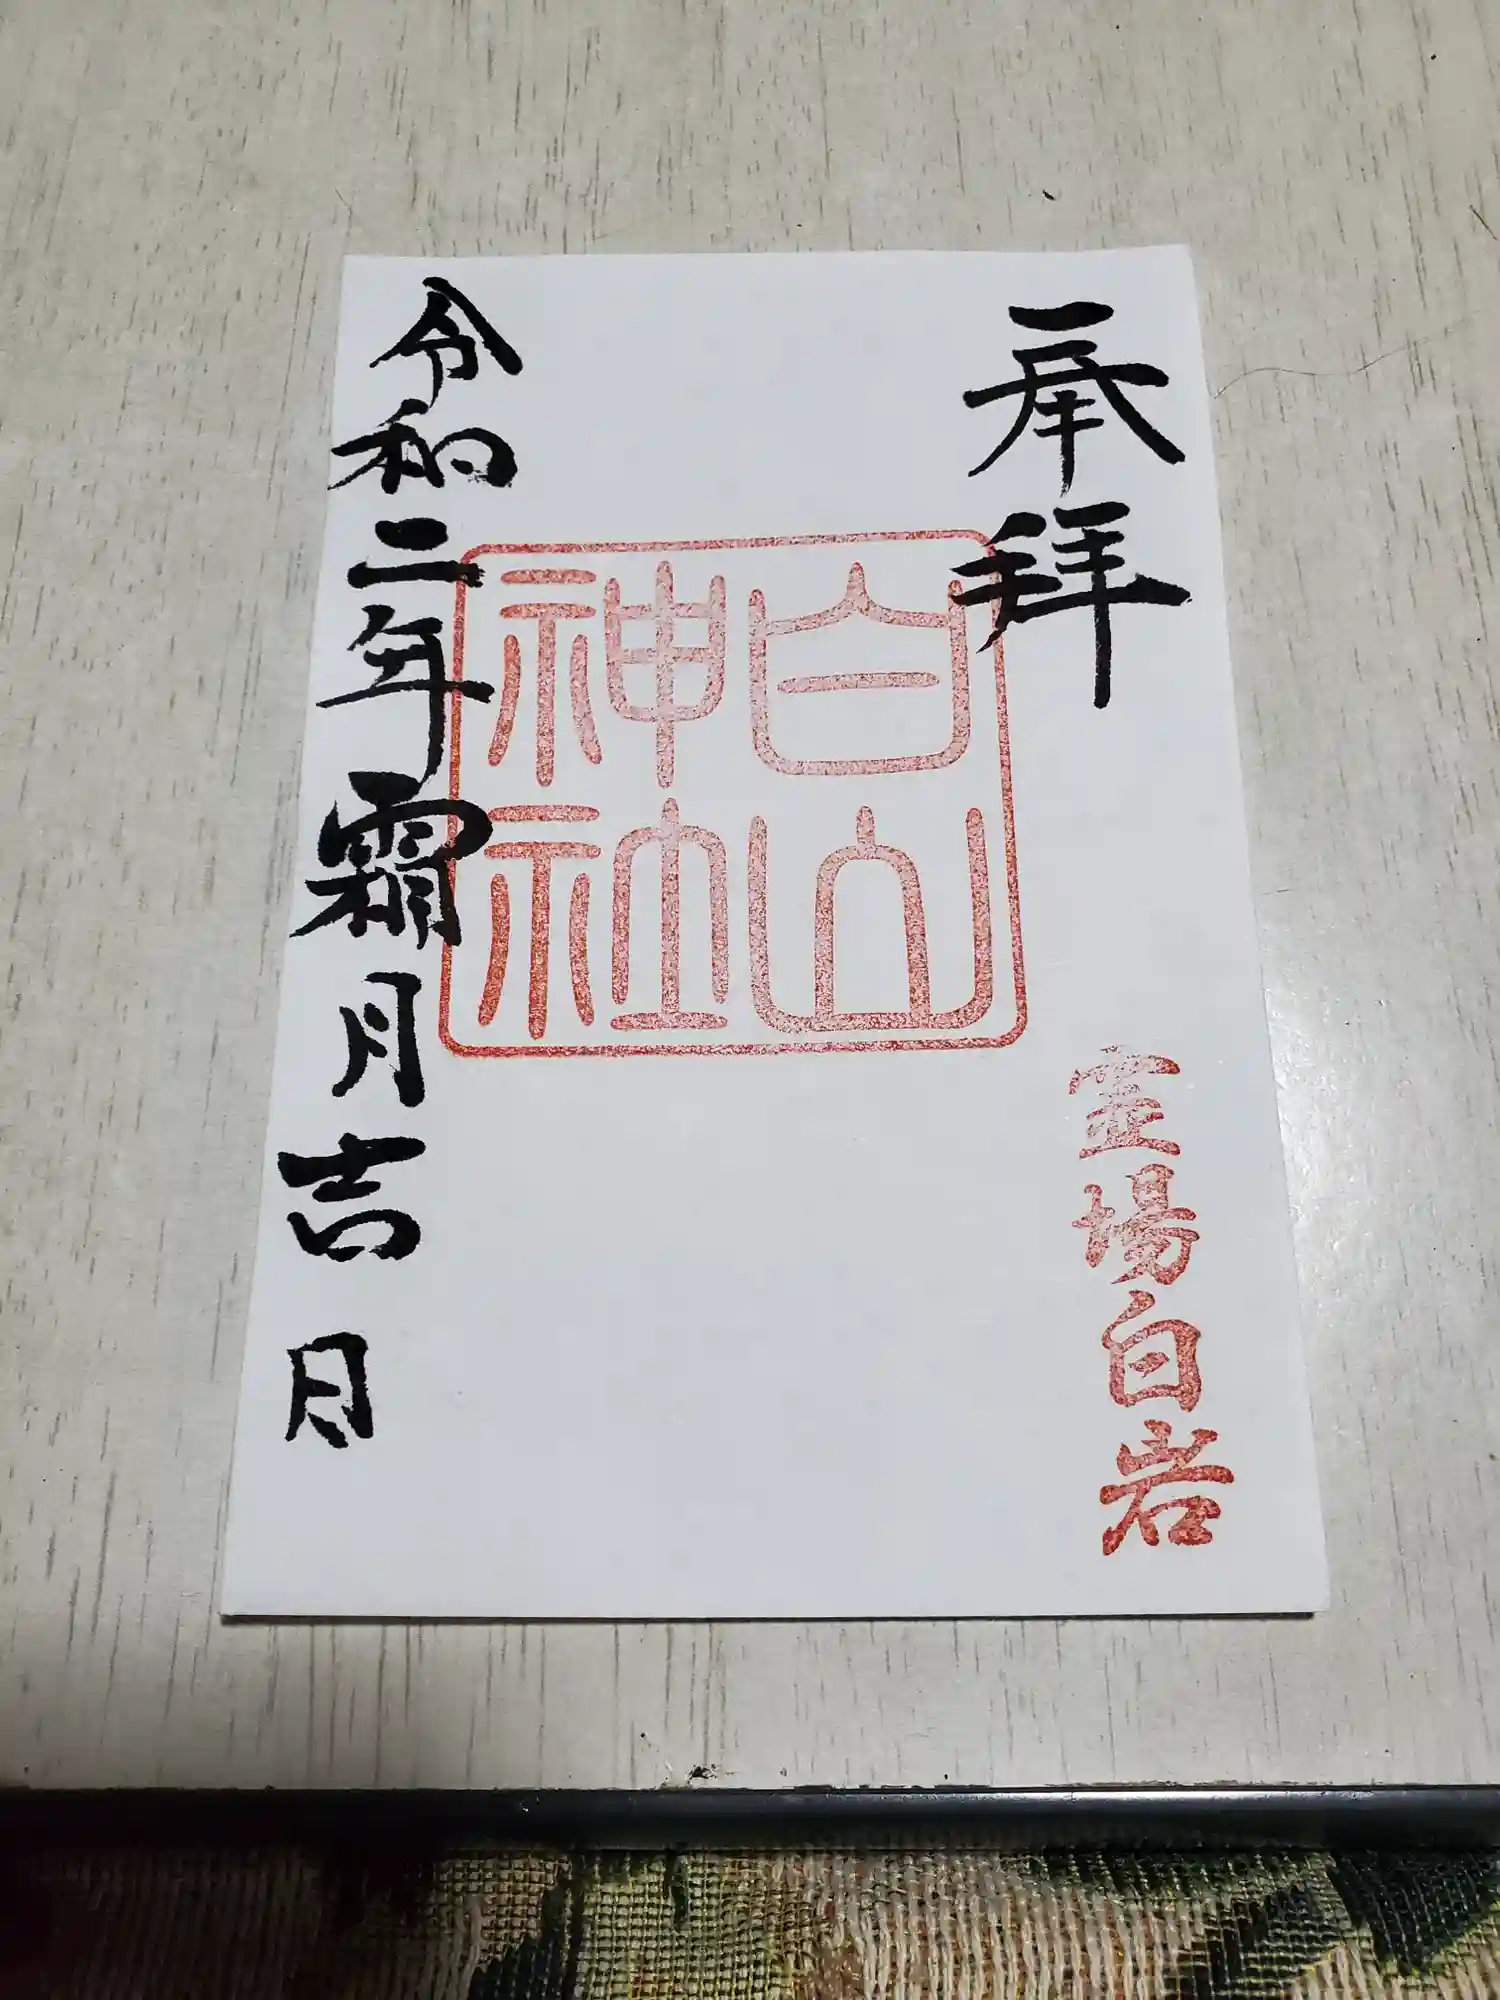 奉拝
霊場白岩
白山
神社
令和二年霜月吉日